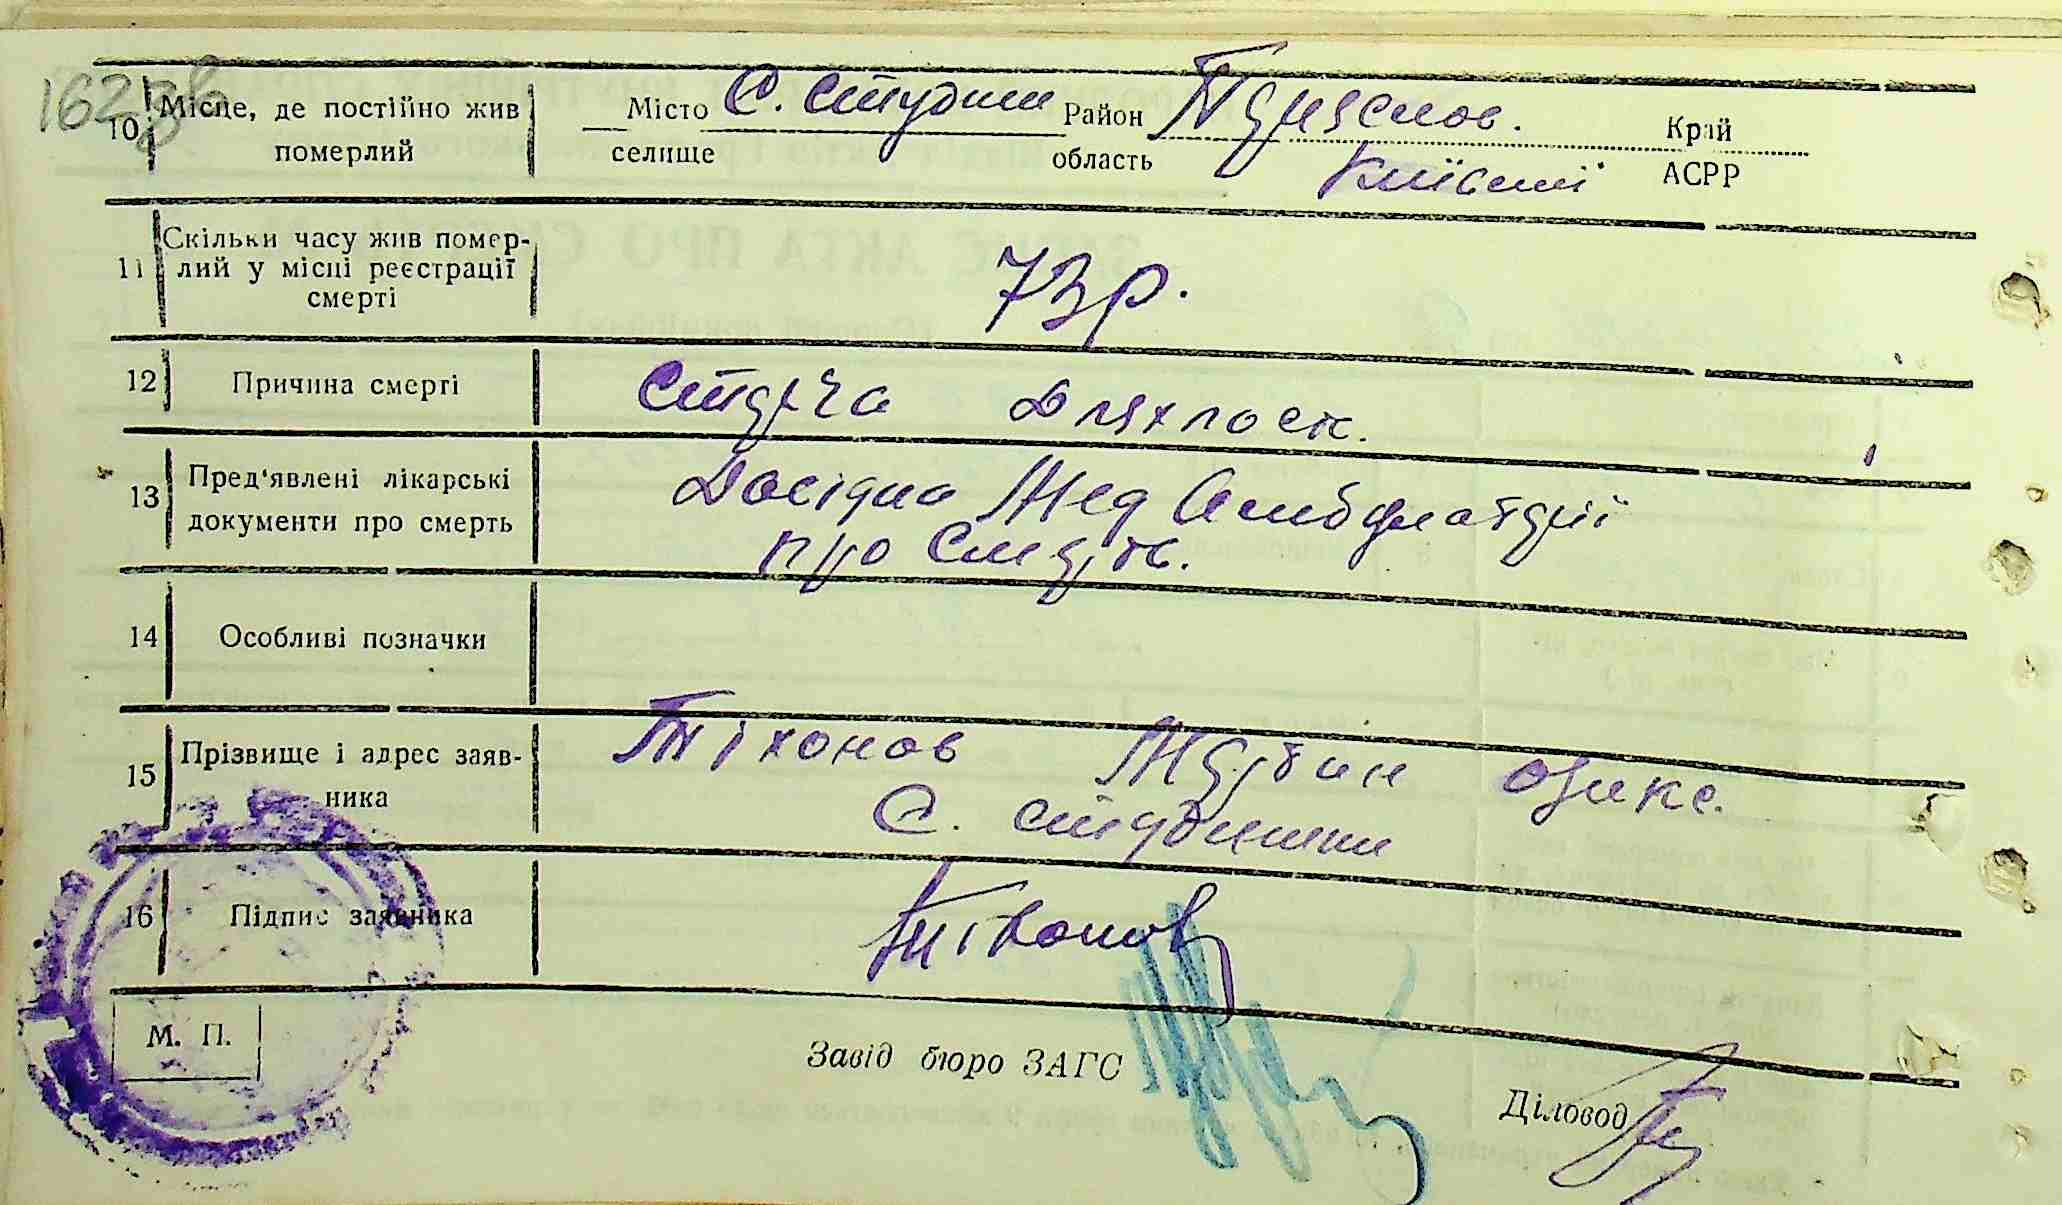 162зв
10 Місце, де постійно жив померлий
Місто С. Студини Район Переяслов. Край
селище область Київскої АСРР
11 Скільки часу жив помер-
лий у місці реєстрації
смерті
73 р.
12 Причина смерті
Стареча Дряхлост.
13 Пред'явлені лікарські
документи про смерть
Довідка Мед Амбулаторії
про Смерть.
14 Особливі позначки
15 Прізвище і адрес заяв-
ника
Тіхонов
С.
16 Підпис заявника
Тіхонов
М. П.
Завід бюро ЗАГС
Діловод